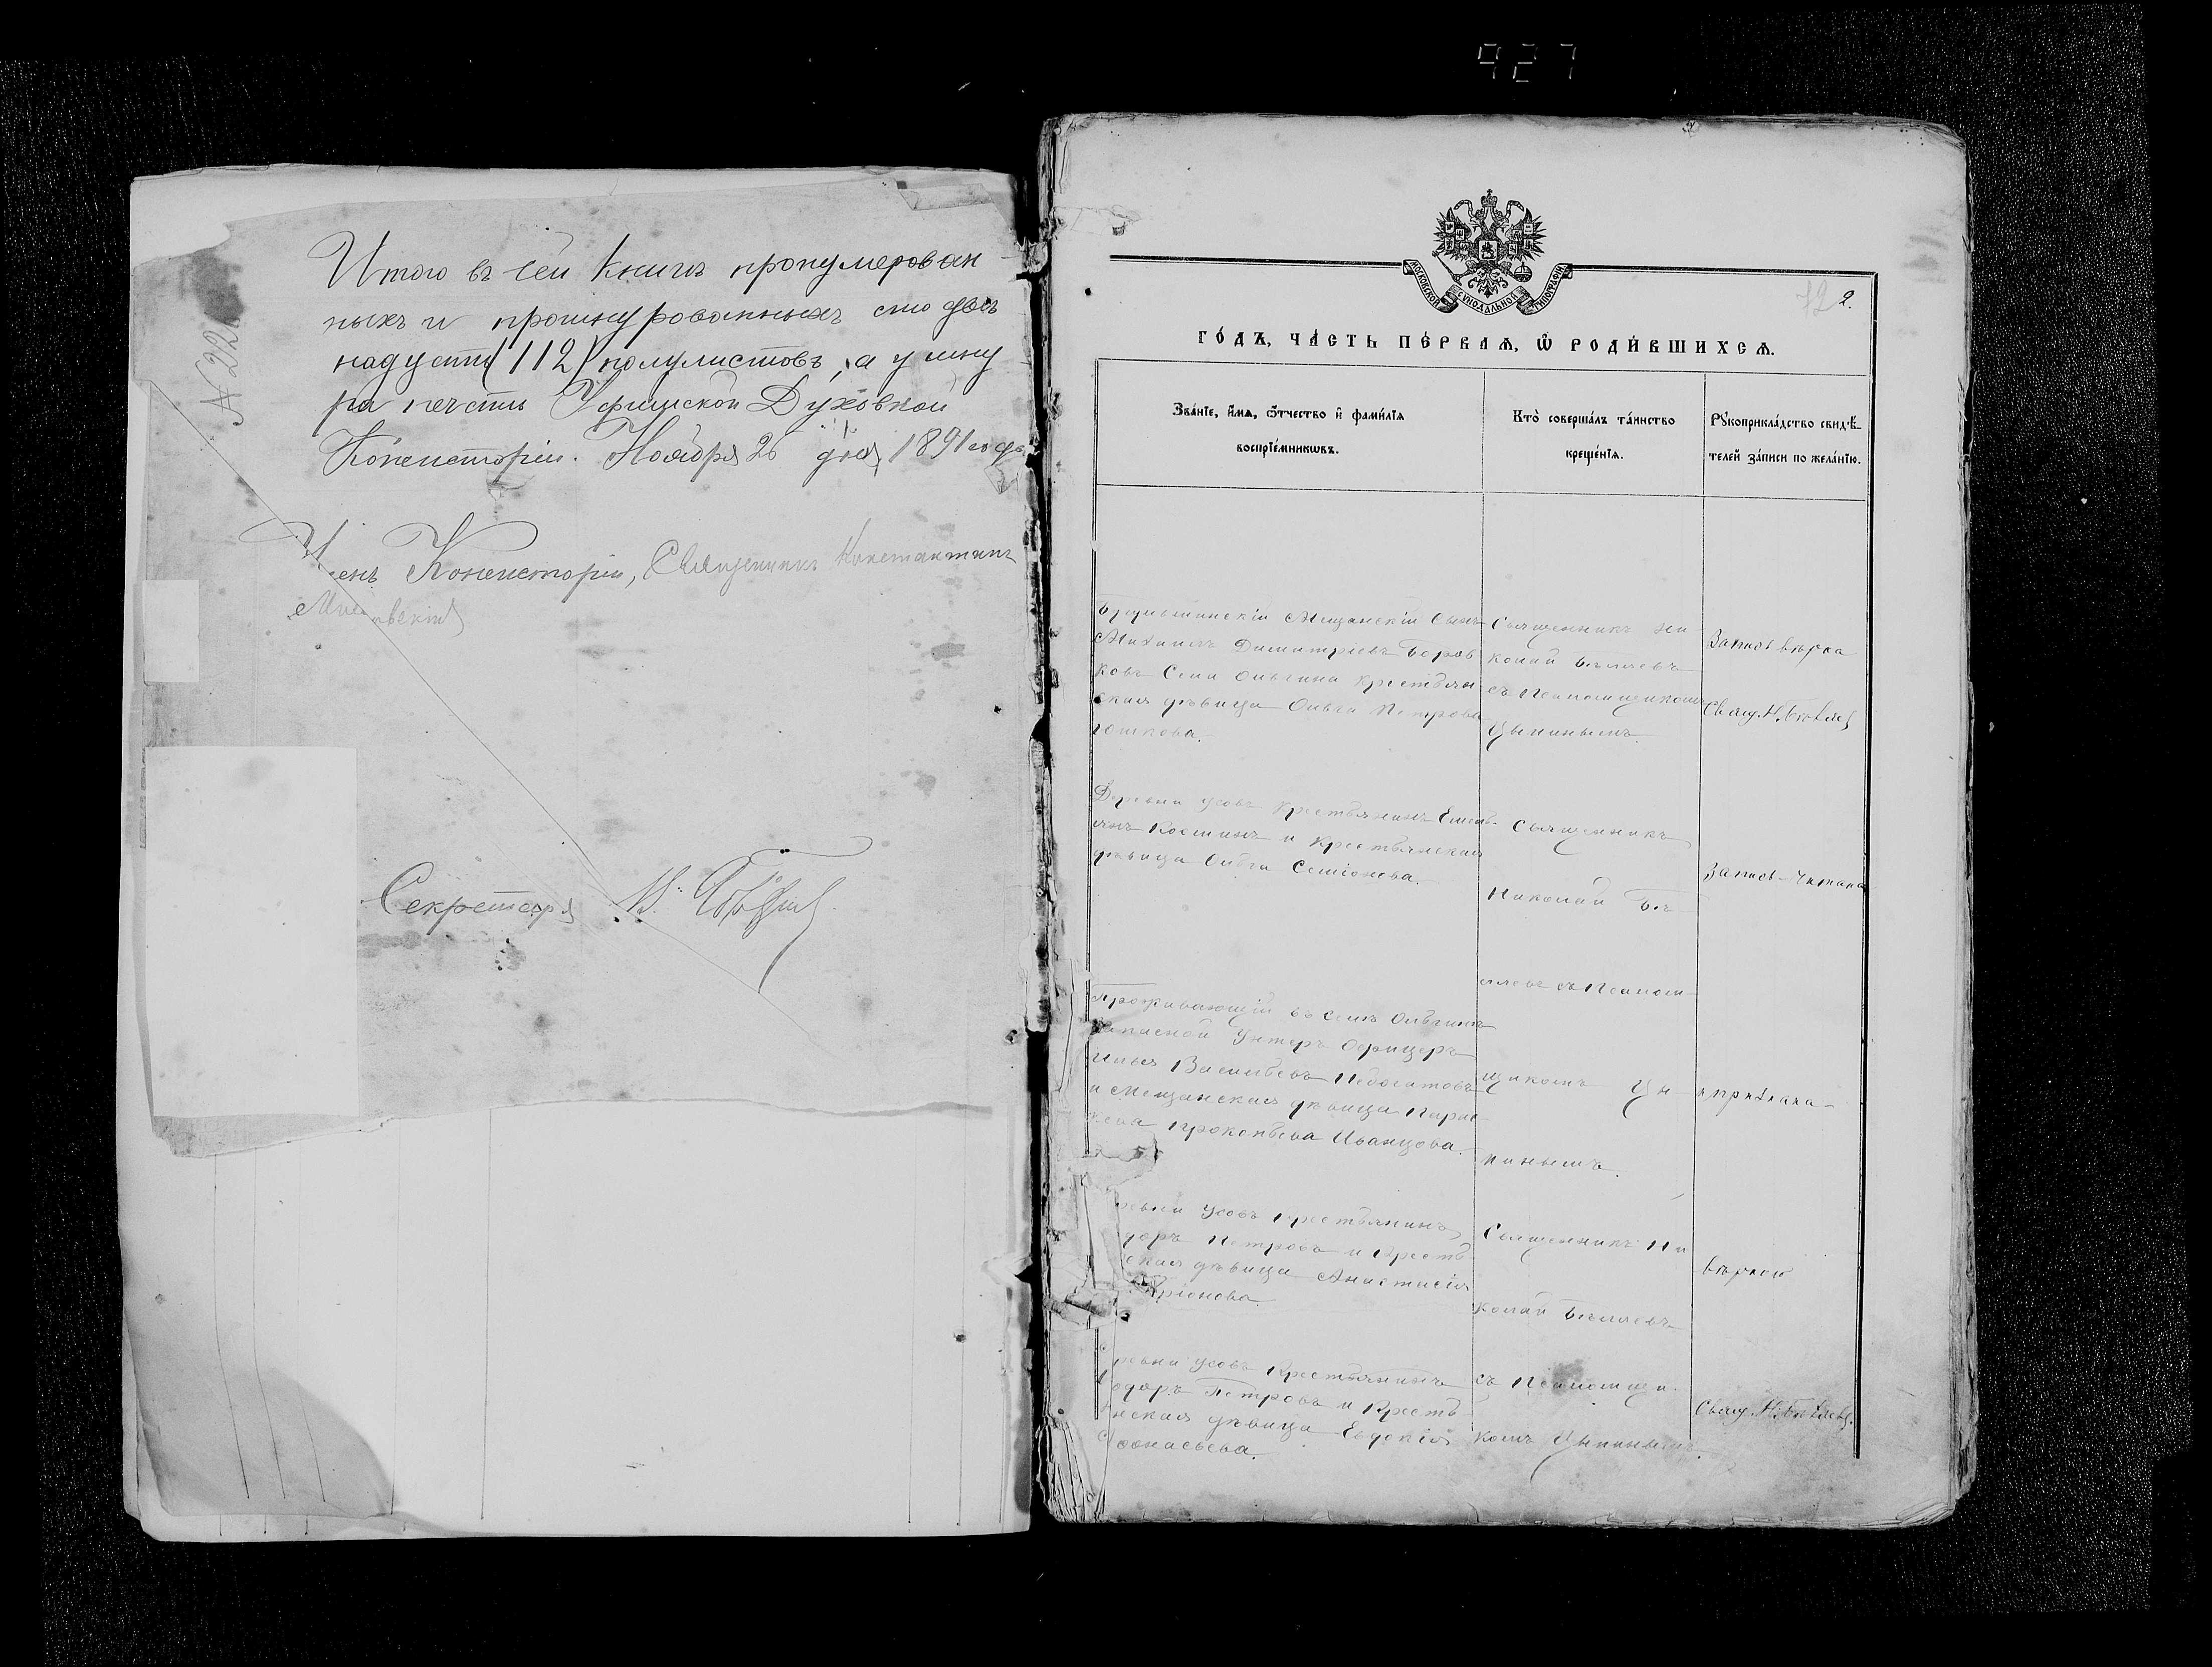 927
Итого въ сей книгѣ пронумерован-
ныхъ и прошнурованныхъ сто двѣ
надцать (112) полулистовъ, а у шну
ра печать Уфимской Духовной
Консисторіи. Ноября 26 дня 1891 года
Членъ Консисторіи, Священникъ Константинъ
Секретарь
МОСКОВСКОЙ СѴНОДАЛЬНОЙ ТИПОГРАФІИ
2.
ГО́ДЪ, ЧА́СТЬ ПЕ́РВАѦ, Ѽ РОДИ́ВШИХСѦ.
Зва́нїе, и҆́мѧ, ѻ҆́тчество и҆ фами́лїѧ
воспрїе́мникѡвъ.
Кто̀ соверша́лъ та́инство
креще́нїѧ.
Рꙋкоприкла́дство свидѣ́-
телей за́писи по жела́нїю.
Мещанскій Сынъ
Михаилъ Димитріевъ Боров
ковъ Села Ольгина крестьян
ская дѣвица Ольга Петрова
Священникъ Ни
колай Бѣляевъ
съ Псаломщикомъ
Цыпинымъ.
Запись вѣрна
Свящ. Н. Бѣляевъ
Деревни Усовъ Крестьянинъ Емель
янъ Костинъ и Крестьянская
дѣвица Ольга Семіонова.
Священникъ
Николай Бѣ
ляевъ съ Псалом-
щикомъ Цы
пинымъ.
Запись читана
Проживающій въ селѣ Ольгинѣ
запасной Унтеръ Офицеръ
Илья Васильевъ
и Мещанская дѣвица Парас
кева Прокопьева Иванцова.
и признана
ревни Усовъ крестьянинъ
доръ Петровъ и Кресть
ская дѣвица Анастасія
ріонова.
Священникъ Ни
колай Бѣляевъ
вѣрною
ревни Усовъ Крестьянинъ
одоръ Петровъ и Кресть
нская дѣвица Евдокія
Аѳонасьева.
съ Псаломщи
комъ Цыпинымъ.
Свящ. Н. Бѣляевъ.